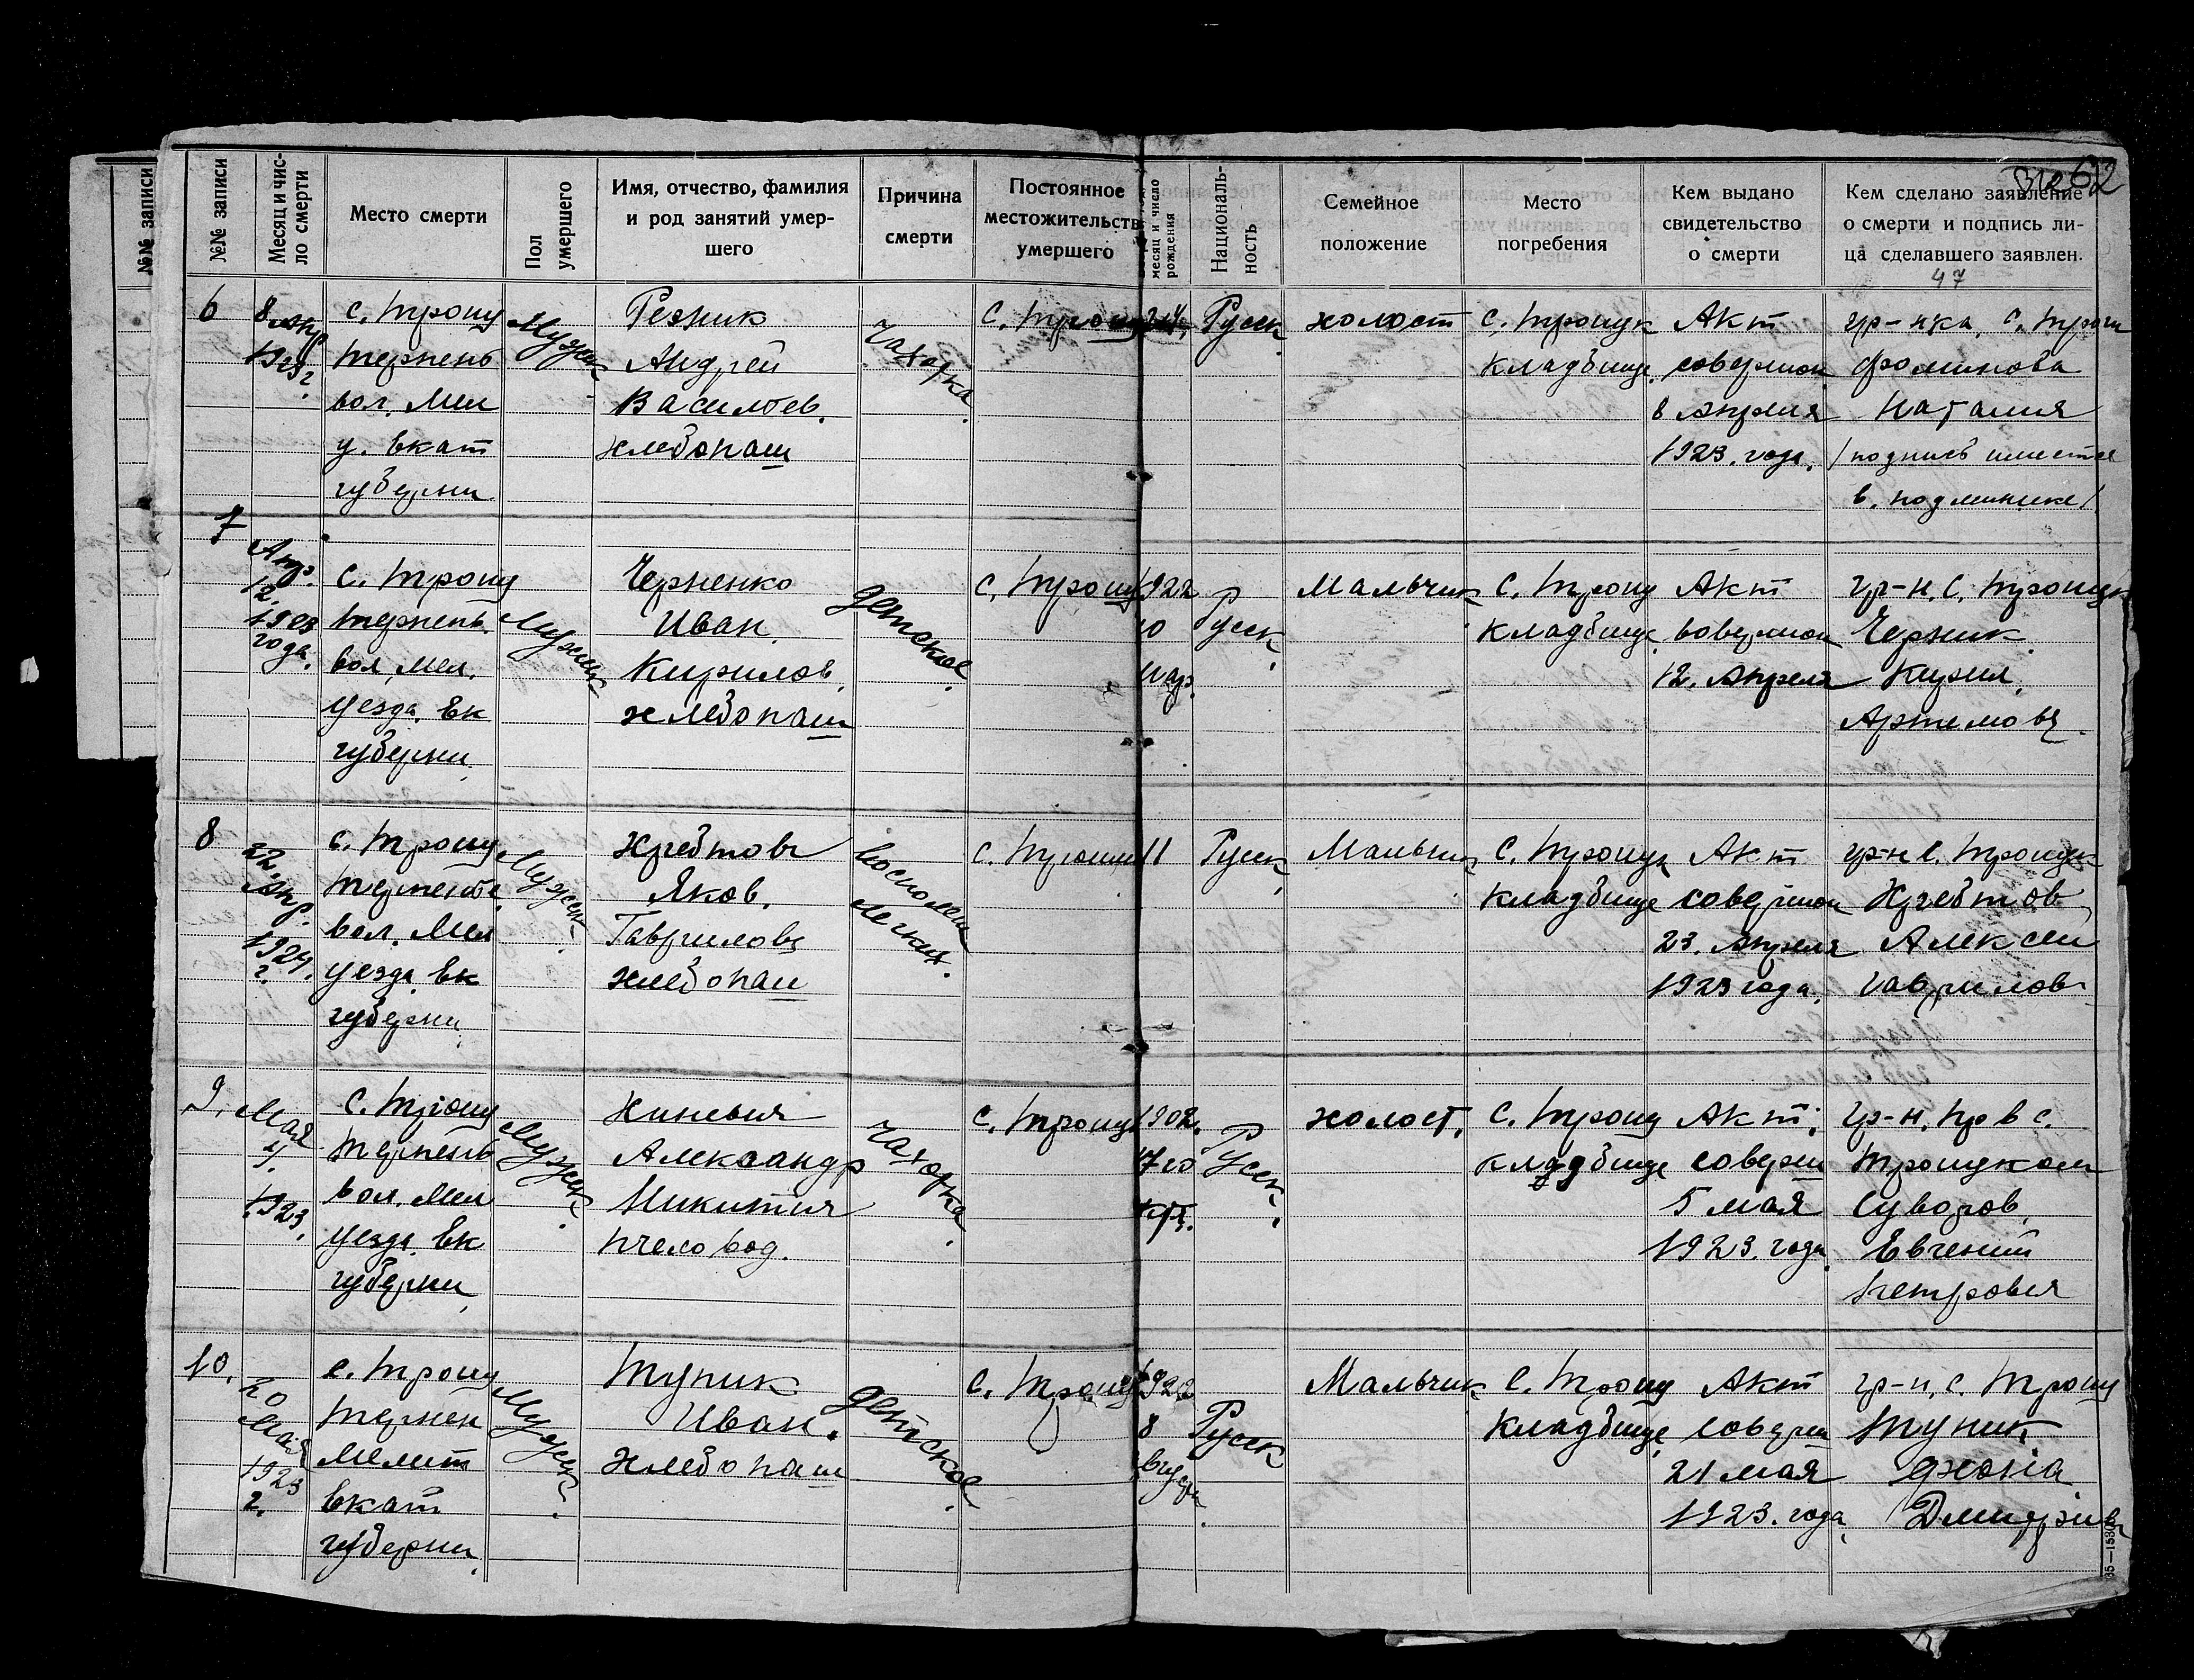 №№ записи
№№ записи
Месяц и число смерти
Место смерти
Пол умершего
Имя, отчество, фамилия
и род занятий умер-
шего
Причина
смерти
Постоянное
местожительств
умершего
месяц и число
рождения
Националь-
ность
Семейное
положение
Место
погребения
Кем выдано
свидетельство
о смерти
Кем сделано заявление
о смерти и подпись ли-
ца сделавшего заявлен.
62
47
6
8 Апр
1923
г.
с. Троиц
Терпень
вол. Мел
у. Екат
губерни
Мужск.
Резник
Андрей
Васильев.
хлебопаш
Чахотка.
С. Троиц
Русск.
холост
С. Троицк
кладбище.
Акт
совершон
8 Апреля
1923. года.
гр-нка, С. Троиц
Фоминова
Наталия
/подпись имеется
в. подлинике/
7
Апр.
12.
1923
года.
С. Троиц
Терпень.
вол. Мел.
уезда. Ек
губерни
Мужск
Черненко
Иван.
Кирилов.
хлебопаш
Детское.
С. Троиц
1922
10
Мар.
Русск.
Мальчик
С. Троиц
кладбище.
Акт
вовершон
12. Апреля
гр-н. С. Троицк
Черник.
Кирил.
Артемовч
8
22.
Апр.
1924.
г.
с. Троиц
Терпенье
вол. Мел
уезда. Ек
губерни
Мужск.
Хребтовг
Яков.
Гавриловч
хлебопаш
Воспален
легких.
С. Троиц
11
Русск.
Мальчик
С. Троицк
кладбище
Акт
совершон
23. Апреля
1923 года.
гр-н С. Троицк
Хребтов
Алексеи
Гаврилов
9.
Мая
4.
1923.
С. Троиц
Терпень
вол. Мел
уезда. Ек
губерни
Мужск.
Александр
Никитич
пчеловод.
Чахотка.
С. Троиц
1902.
17 го
Русск.
холост.
С. Троиц
кладбище
Акт.
соверш
5 мая
1923. года
гр-н. пр в с.
Троицком
Суворов.
Евгений
Петрович
10.
20
Мая
1923
г.
с. Троиц
Терпен
Мелит
Екат
губерни
Мужск.
Тупик
Иван.
Хлебопаш
Детское.
С. Троиц
1922
8
Русск
Мальчик
С. Троиц
кладбище.
Акт
соверш
21 мая
1923. года
гр-н. с. Троиц
Тупик
Дмитрiив
35—1580